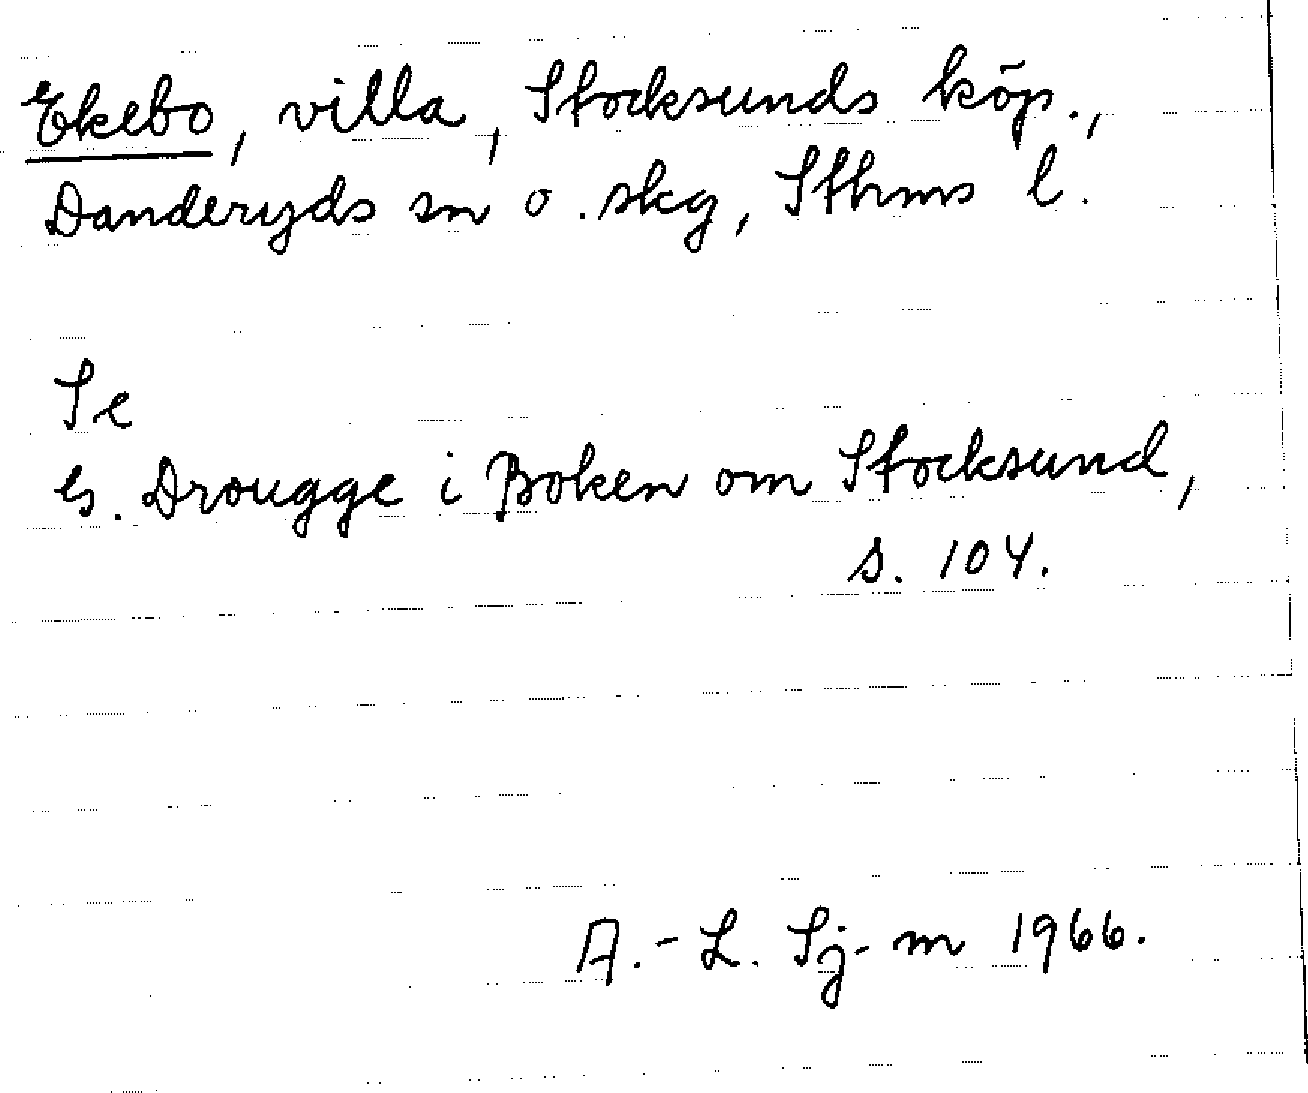 Ekebo, villa, Stocksunds köp.,
Danderyds sn o. skg, Sthms l.
Se
G. Drougge i Boken om Stocksund,
s. 104.
A.-L. Sj-m 1966.